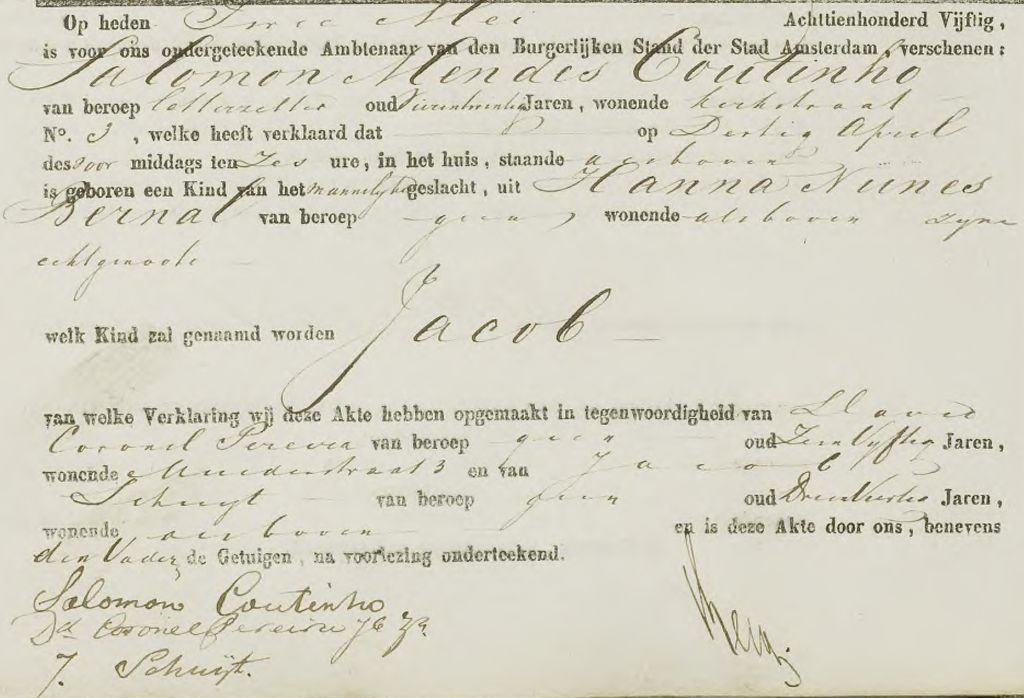 Op heden Twee Mei Achttienhonderd Vijftig,
is voor ons ondergeteekende Ambtenaar van den Burgerlijken Stand der Stad Amsterdam, verschenen:
Salomon Mendes Coutinho
van beroep Letterzetter oud Vierentwintig Jaren, wonende Kerkstraat
No. 3, welke heeft verklaard dat op Dertig April
des voor middags ten Zes ure, in het huis, staande als boven
is geboren een Kind van het mannelijke geslacht, uit Hanna Nunes
Bernal van beroep geen, wonende als boven zyne
echtgenoote
welk Kind zal genaamd worden Jacob
van welke Verklaring wij deze Akte hebben opgemaakt in tegenwoordigheid van David
Coronel Pereira van beroep geen oud Vyftig Jaren,
wonende Muiderstraat 3 en van Jacob
Schuyt van beroep geen oud Jaren,
wonende als boven en is deze Akte door ons, benevens
den Vader, de Getuigen, na voorlezing onderteekend.
Salomon Coutinho
Dd Coronel Pereira
J. Schuijt.